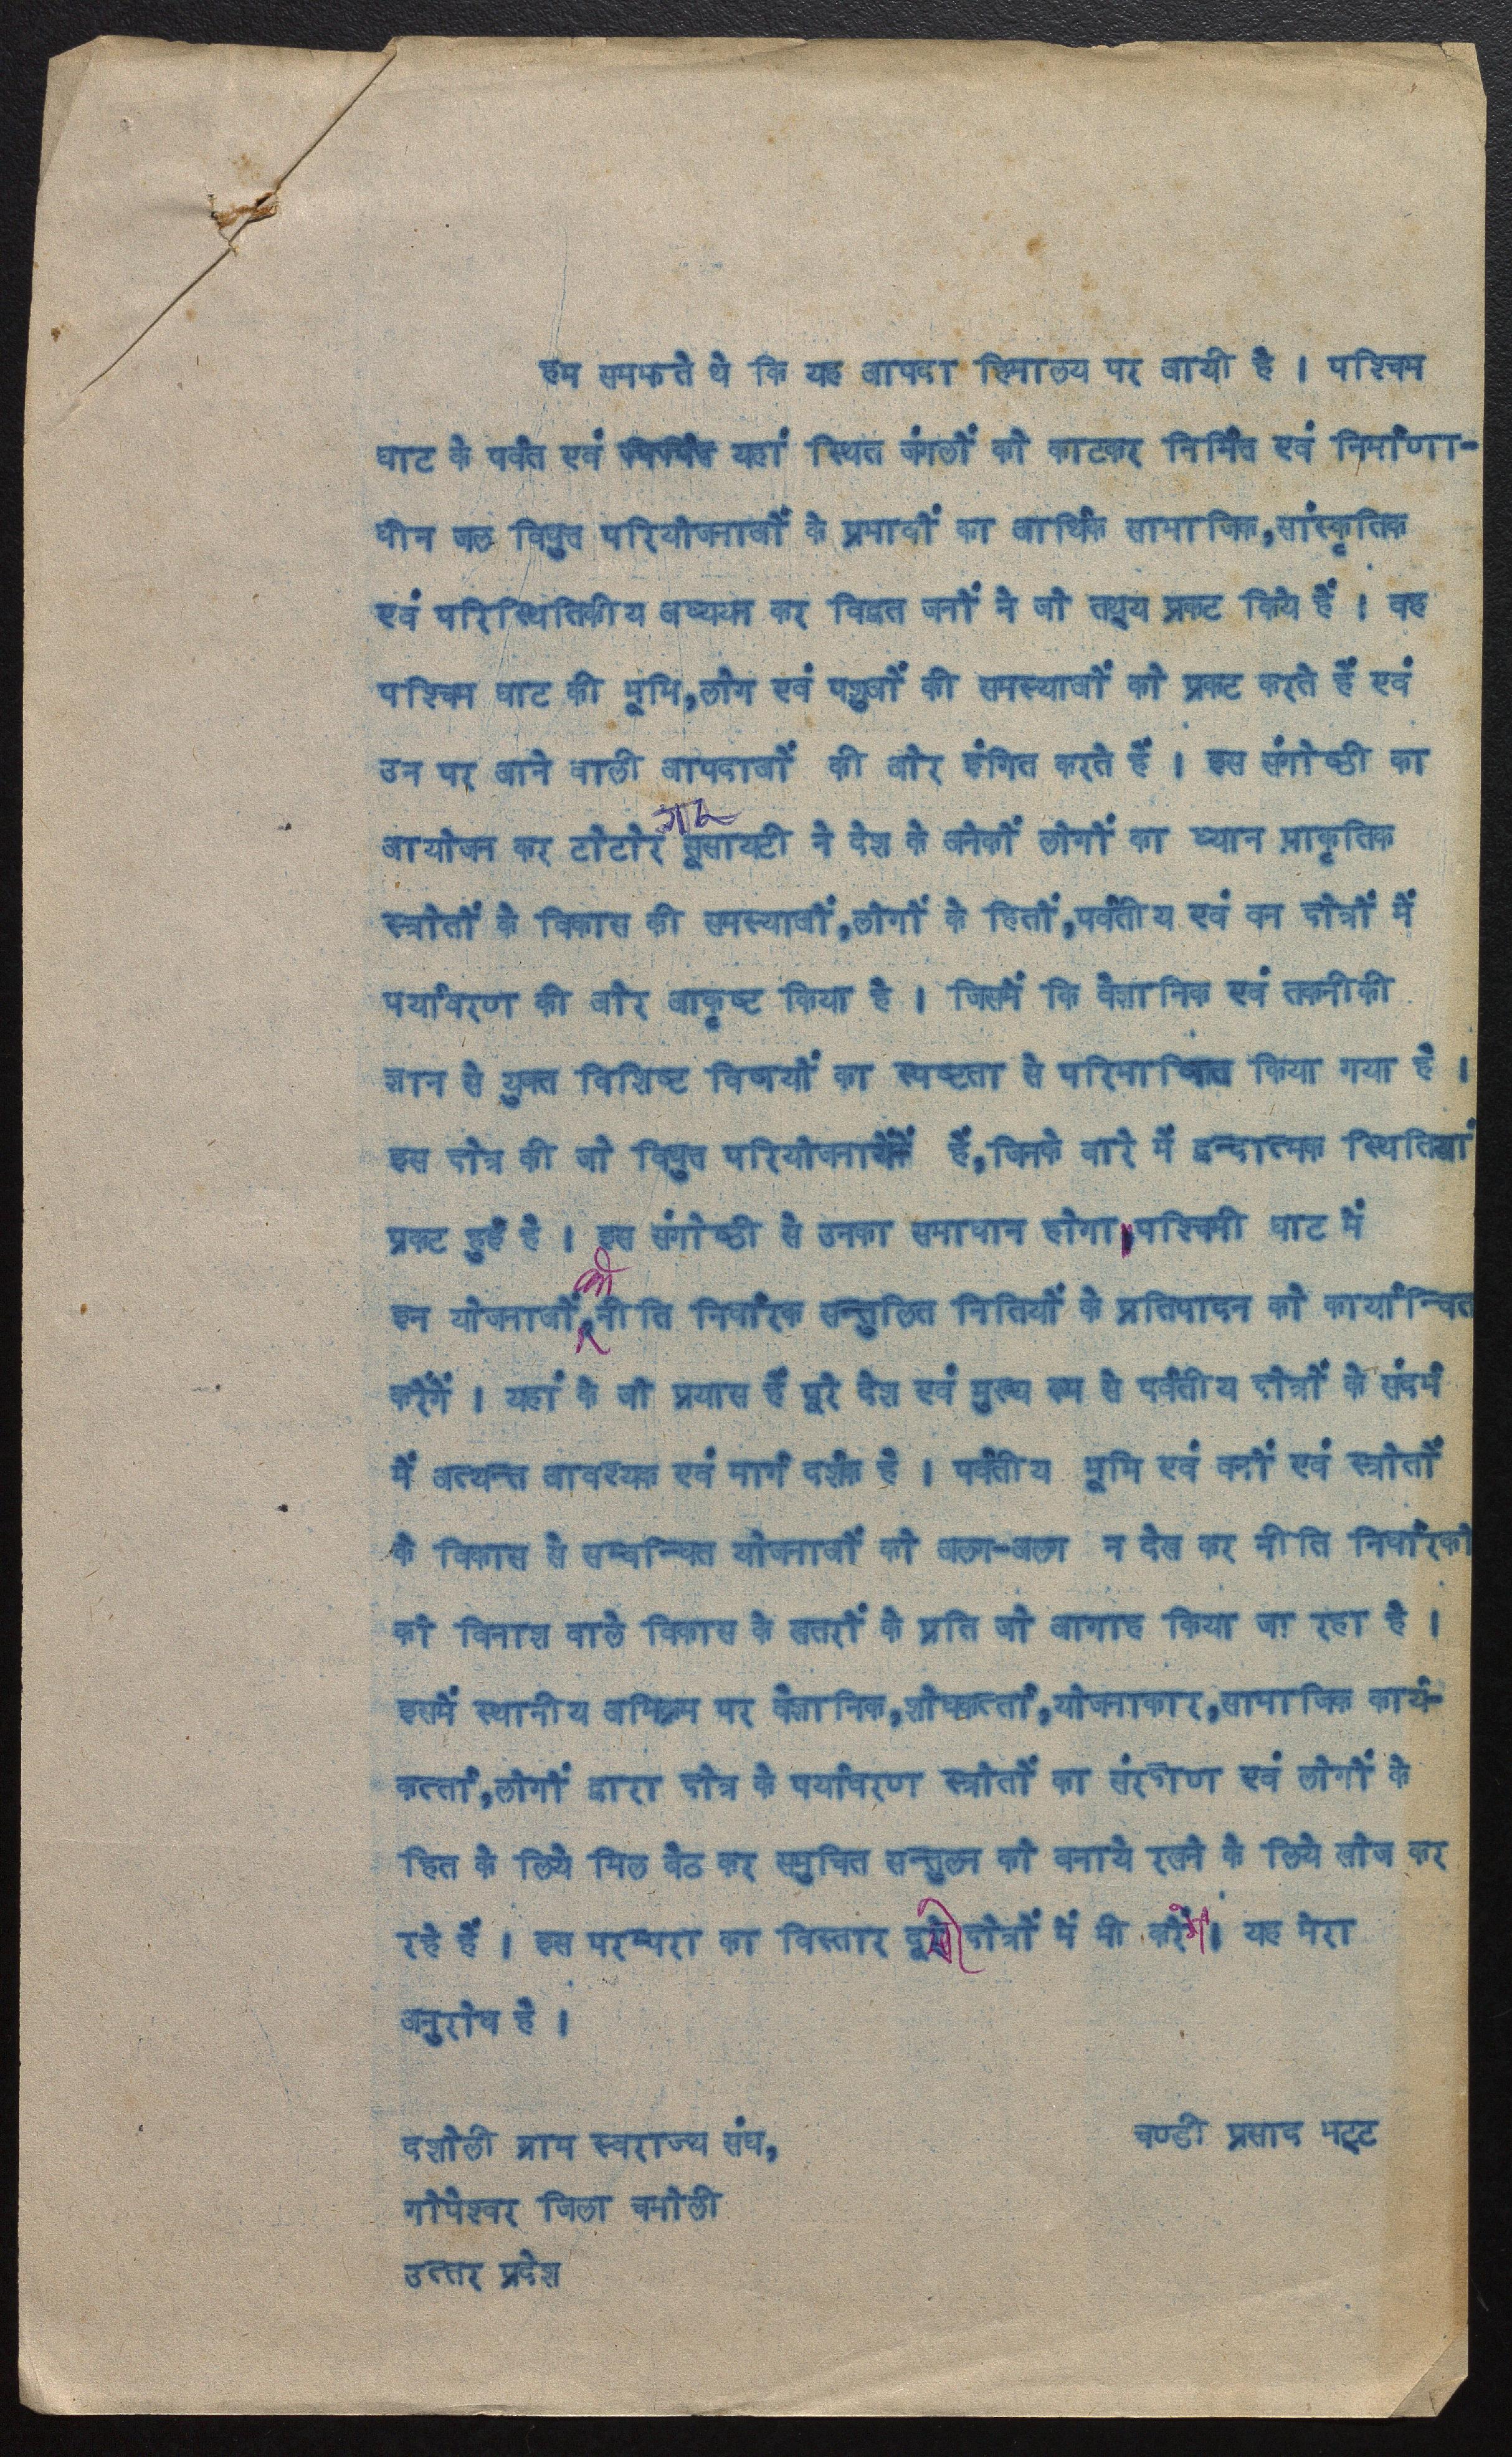 हम समझते थे कि यह आपदा हिमालय पर आयी है । पश्चिम
घाट के पर्वत एवं यहां स्थित जंगलों को काटकर निर्मित एवं निर्माणा-
धीन जल विद्युत परियोजनाओं के प्रभावों का आर्थिक सामाजिक,सांस्कृतिक
एवं परिस्थितिकीय अध्ययन कर विद्वत जनों ने जो तथ्य प्रकट किये हैं । वह
पश्चिम घाट की भूमि,लोग एवं पशुओं की समस्याओं को प्रकट करते हैं एवं
उन पर आने वाली आपदाओं की ओर इंगित करते हैं । इस संगोष्ठी का
आयोजन कर टोटोर सूसायटी ने देश के अनेकों लोगों का ध्यान प्राकृतिक
स्त्रोतों के विकास की समस्याओं,लोगों के हितों,पर्वतीय एवं वन क्षेत्रों में
पर्यावरण की ओर आकृष्ट किया है । जिसमें कि वैज्ञानिक एवं तकनीकी
ज्ञान से युक्त विशिष्ट विषयों का स्पष्टता से परिभाषित किया गया है ।
इस क्षेत्र की जो विद्युत परियोजनायें हैं,जिनके बारे में द्वन्दात्मक स्थितियां
प्रकट हुई है । इस संगोष्ठी से उनका समाधान होगा।पश्चिमी घाट में
इन योजनाओं को नीति निर्धारक सन्तुलित नितियों के प्रतिपादन को कार्यान्वित
करेंगें । यहां के जो प्रयास हैं पूरे देश एवं मुख्य रूप से पर्वतीय क्षेत्रों के संदर्भ
में अत्यन्त आवश्यक एवं मार्ग दर्शक है । पर्वतीय भूमि एवं वनों एवं स्त्रोतों
के विकास से सम्बन्धित योजनाओं को अलग-अलग न देख कर नीति निर्धारको
को विनाश वाले विकास के खतरों के प्रति जो आगाह किया जा रहा है ।
इसमें स्थानीय अभिक्रम पर वैज्ञानिक,शोधकर्त्ता,योजनाकार,सामाजिक कार्य-
कर्त्ता,लोगों द्वारा क्षेत्र के पर्यावरण स्त्रोतों का संरक्षण एवं लोगों के
हित के लिये मिल बैठ कर समुचित सन्तुलन को बनाये रखने के लिये खोज कर
रहे हैं । इस परम्परा का विस्तार दूसरे क्षेत्रों में भी करेंगे । यह मेरा
अनुरोध है ।
दशोली ग्राम स्वराज्य संघ, चण्डी प्रसाद भट्ट
गोपेश्वर जिला चमोली
उत्तर प्रदेश